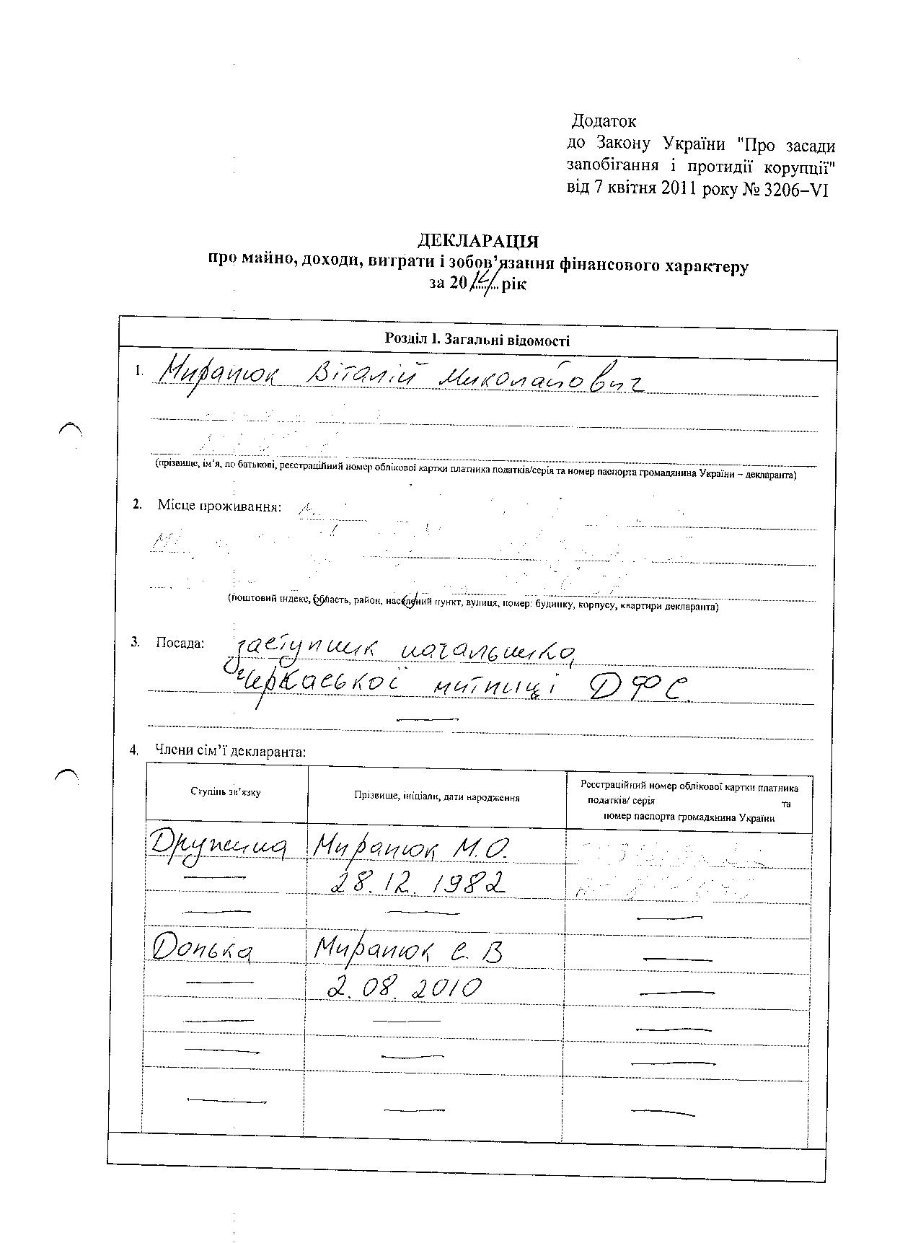 Додаток
до Закону України "Про засади
запобігання і протидії корупції"
від 7 квітня 2011 року № 3206–VI
ДЕКЛАРАЦІЯ
про майно, доходи, витрати і зобов’язання фінансового характеру
за 2014 рік
Розділ I. Загальні відомості
1. Миранюк Віталій Миколайович
(прізвище, ім’я, по батькові, реєстраційний номер облікової картки платника податків/серія та номер паспорта громадянина України – декларанта)
2. Місце проживання:
(поштовий індекс, область, район, населений пункт, вулиця, номер: будинку, корпусу, квартири декларанта)
3. Посада: заступник начальника
Черкаської митниці ДФС
4. Члени сім’ї декларанта:
Ступінь зв’язку
Прізвище, ініціали, дати народження
Реєстраційний номер облікової картки платника
податків/ серія та
номер паспорта громадянина України
Дружина Миранюк М.О.
28.12.1982
Донька Миранюк Є. В
2.08.2010